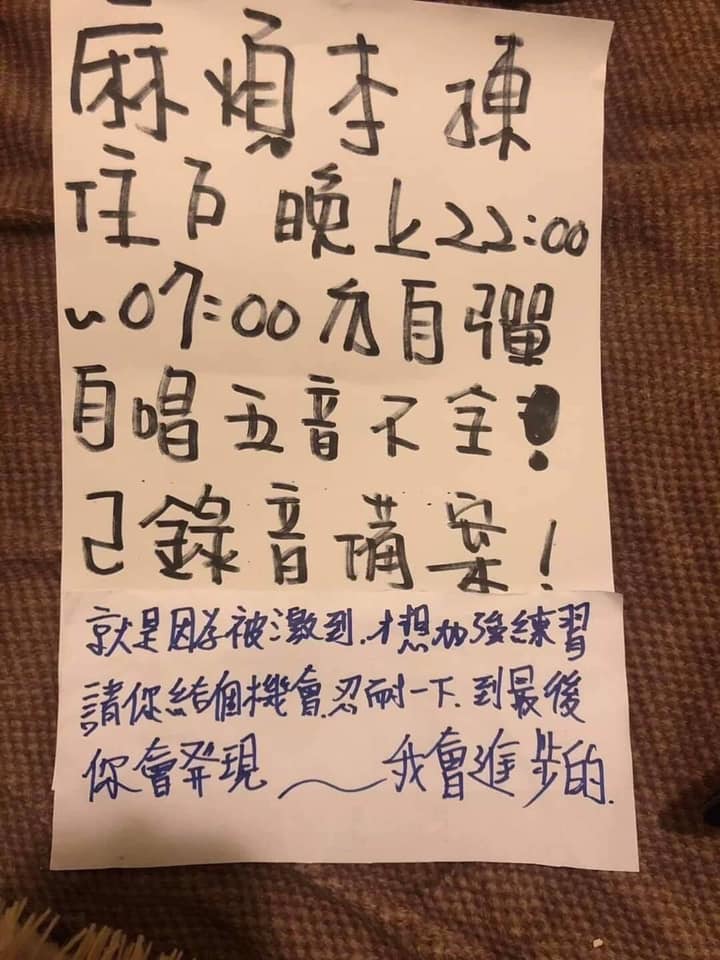 麻煩本棟
住戶 晚上22:00
~07:00分自彈
自唱五音不全!
已錄音備案!
就是因為被激到.才想加強練習
請你給個機會.忍耐一下.到最後
你會發現～我會進步的.